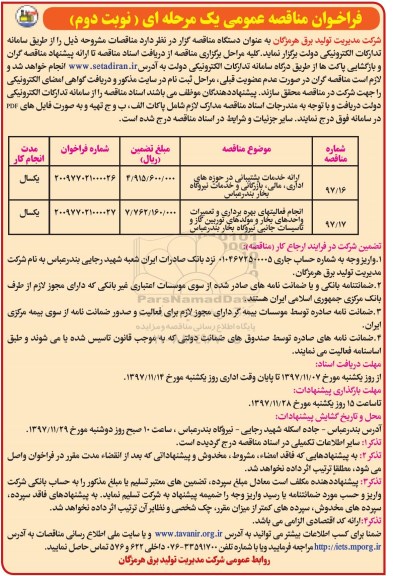 فراخوان مناقصه عمومی یک مرحله ای ( نوبت دوم)
شرکت مدیریت تولید برق هرمزگان به عنوان دستگاه مناقصه گزار در نظر دارد مناقصات مشروحه ذیل را از طریق سامانه
تدارکات الکترونیکی دولت برگزار نماید. کلیه مراحل برگزاری مناقصه از دریافت اسناد مناقصه تا ارائه پیشنهاد مناقصه گران
و بازگشایی پاکت ها از طریق درگاه سامانه تدارکات الکترونیکی دولت به آدرس www.setadiran.ir انجام خواهد شد و
لازم است مناقصه گران در صورت عدم عضویت قبلی، مراحل ثبت نام در سایت مذکور و دریافت گواهی امضای الکترونیکی
را جهت شرکت در مناقصه محقق سازند. پیشنهاددهندگان موظف می باشند اسناد مناقصه را از سامانه تدارکات الکترونیکی
دولت دریافت و با توجه به مندرجات اسناد مناقصه مدارک لازم شامل پاکات الف، ب و ج تهیه و به صورت فایل های PDF
در سامانه فوق درج نمایند. سایر جزئیات و شرایط در اسناد مناقصه درج شده است.
شماره مناقصه | موضوع مناقصه | مبلغ تضمین (ریال) | شماره فراخوان | مدت انجام کار
۹۷/۱۶ | ارائه خدمات پشتیبانی در حوزه های اداری، مالی، بازرگانی و خدمات نیروگاه بخار بندرعباس | ۴/۹۱۵/۶۰۰/۰۰۰ | ۲۰۰۹۷۷۰۲۱۰۰۰۰۲۶ | یکسال
۹۷/۱۷ | انجام فعالیتهای بهره برداری و تعمیرات واحدهای بخار و مولدهای توربین گاز و تاسیسات جانبی نیروگاه بخار بندرعباس | ۷/۷۶۲/۱۶۰/۰۰۰ | ۲۰۰۹۷۷۰۲۱۰۰۰۰۲۷ | یکسال
تضمین شرکت در فرایند ارجاع کار (مناقصه):
۱.واریز وجه به شماره حساب جاری ۰۱۰۴۶۷۲۵۰۰۰۰۵ نزد بانک صادرات ایران شعبه شهید رجایی بندرعباس به نام شرکت
مدیریت تولید برق هرمزگان.
۲.ضمانتنامه بانکی و یا ضمانت نامه های صادر شده از سوی موسسات اعتباری غیر بانکی که دارای مجوز لازم از طرف
بانک مرکزی جمهوری اسلامی ایران هستند.
۳.ضمانت نامه صادره توسط موسسات بیمه گر دارای مجوز لازم برای فعالیت و صدور ضمانت نامه از سوی بیمه مرکزی
ایران.
۴.ضمانت نامه های صادره توسط صندوق های ضمانت دولتی که به موجب قانون تاسیس شده یا می شوند و طبق
اساسنامه فعالیت می نمایند.
مهلت دریافت اسناد:
از روز یکشنبه مورخ ۱۳۹۷/۱۱/۰۷ تا پایان وقت اداری روز یکشنبه مورخ ۱۳۹۷/۱۱/۱۴.
مهلت بارگذاری پیشنهادات:
تا ساعت ۱۵ روز یکشنبه مورخ ۱۳۹۷/۱۱/۲۸.
محل و تاریخ گشایش پیشنهادات:
آدرس بندرعباس - جاده اسکله شهید رجایی - نیروگاه بندرعباس، ساعت ۱۰ صبح روز دوشنبه مورخ ۱۳۹۷/۱۱/۲۹.
تذکر۱: سایر اطلاعات تکمیلی در اسناد مناقصه درج گردیده است.
تذکر۲: به پیشنهادهایی که فاقد امضاء، مشروط، مخدوش و پیشنهاداتی که بعد از انقضاء مدت مقرر در فراخوان واصل
می شود، مطلقا ترتیب اثر داده نخواهد شد.
تذکر۳: پیشنهاددهنده مکلف است معادل مبلغ سپرده، تضمین های معتبر تسلیم یا مبلغ مذکور را به حساب بانکی شرکت
واریز و حسب مورد ضمانتنامه یا رسید واریز وجه را ضمیمه پیشنهاد به شرکت تسلیم نماید. به پیشنهادهای فاقد سپرده،
سپرده های مخدوش، سپرده های کمتر از میزان مقرر، چک شخصی و نظایر آن ترتیب اثر داده نخواهد شد.
تذکر۴: ارائه کد اقتصادی الزامی می باشد.
ضمنا برای کسب اطلاعات بیشتر می توانید به آدرس www.tavanir.org.ir و یا سایت ملی اطلاع رسانی مناقصات به آدرس
http://iets.mporg.ir مراجعه فرمایید ویا با شماره تلفن ۳۳۵۹۱۷۰۰-۰۷۶ داخلی ۶۲۲ و ۵۷۶ تماس حاصل نمایید.
روابط عمومی شرکت مدیریت تولید برق هرمزگان
ParsNamadData
پایگاه اطلاع رسانی مناقصه و مزایده